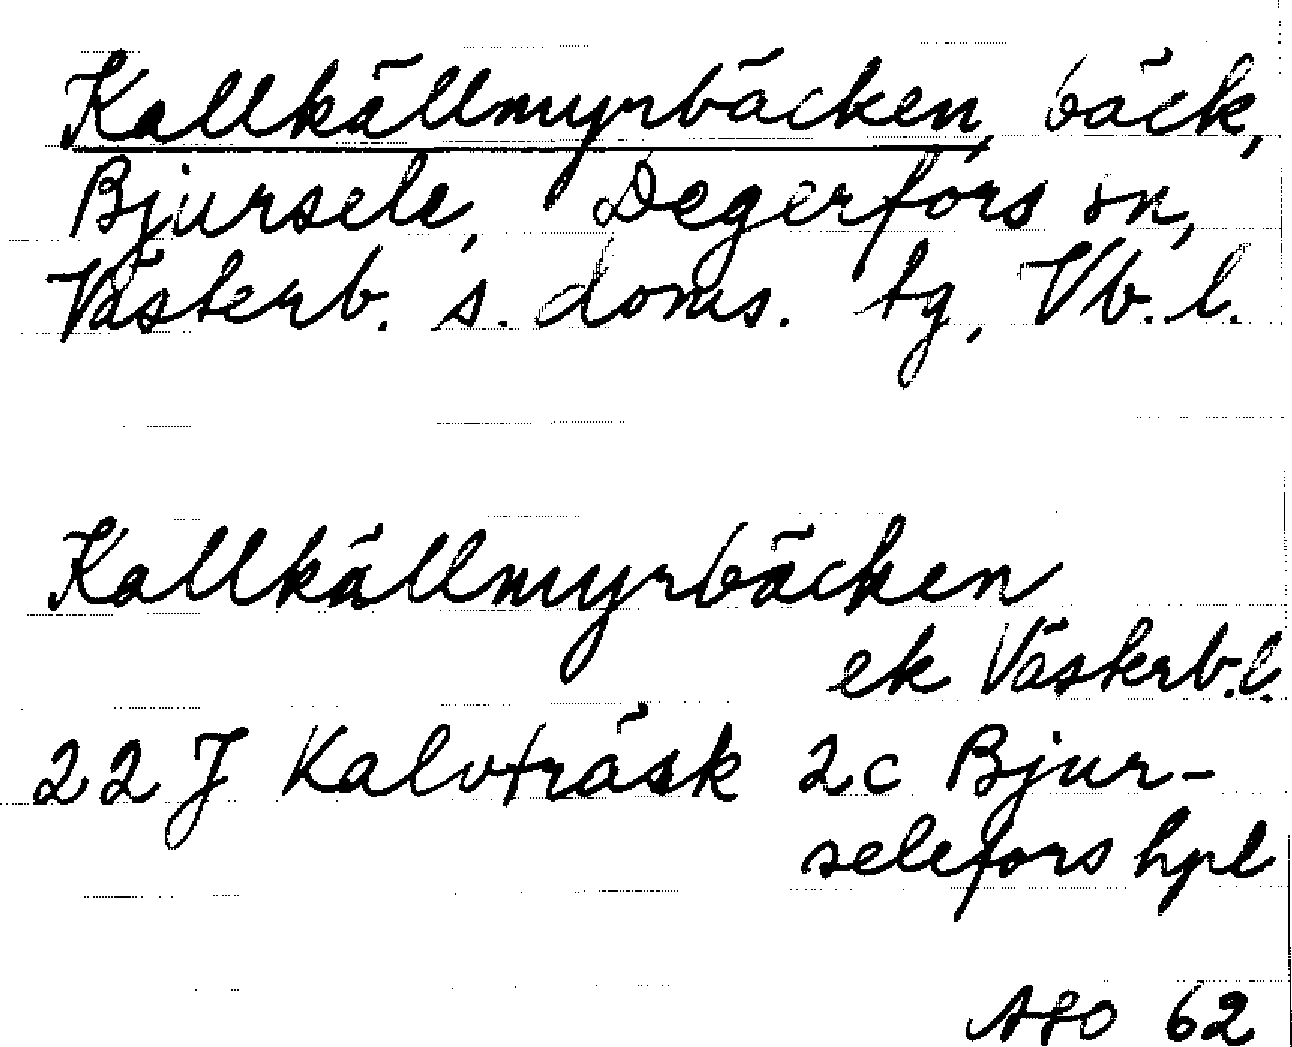 Kallkällmyrbäcken, bäck,
Bjursele, Degerfors sn,
Västerb. s. doms. tg, Vb. l.
Kallkällmyrbäcken
ek Västerb. l.
22 J Kalvträsk 2c Bjur-
selefors hpl
62